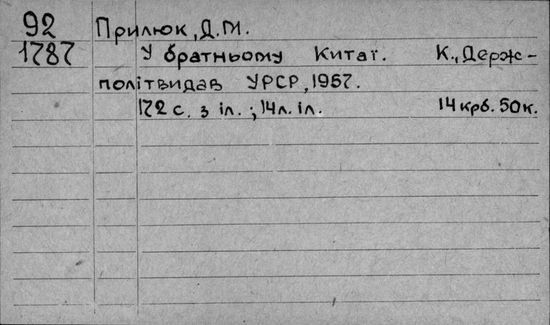 92 Прилюк, Д.М.
1787 У братньому Китаї. К., Держ-
політвидав УРСР, 1957.
172 с. з іл.; 14 л. іл. 14 крб. 50 к.